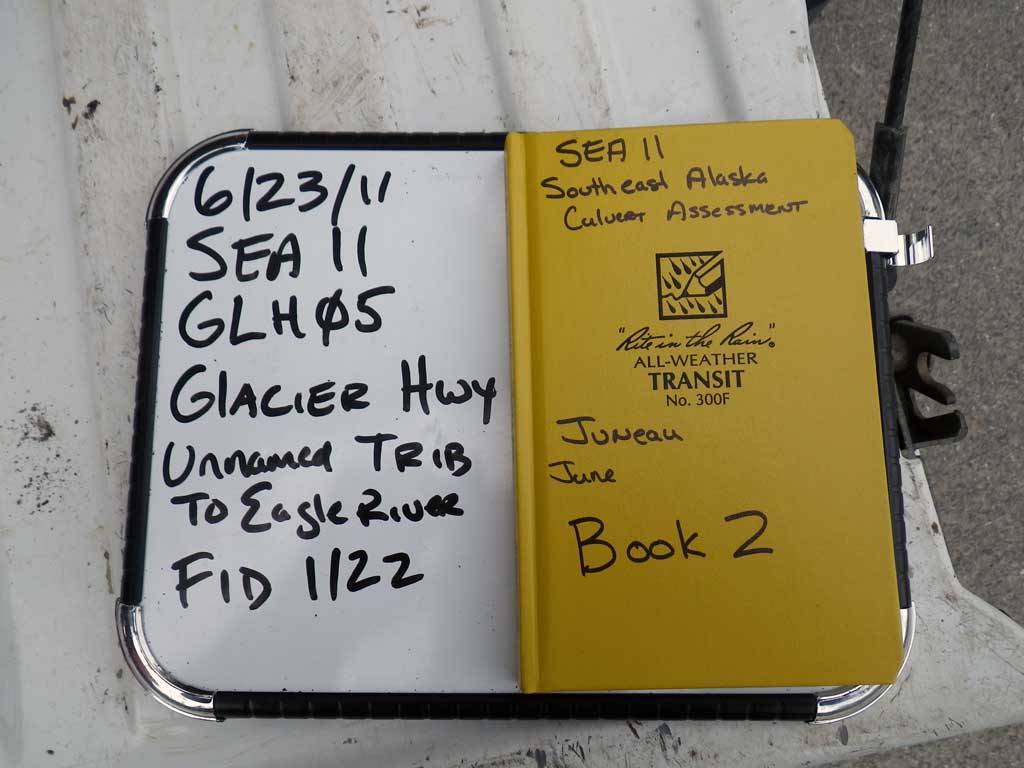 6/23/11
SEA 11
GLH05
GLACIER HWY
Unnamed TRIB
To Eagle River
FID 1122
SEA 11
Southeast Alaska
Culvert Assessment
"Rite in the Rain"®
ALL-WEATHER
TRANSIT
No. 300F
Juneau
June
Book 2